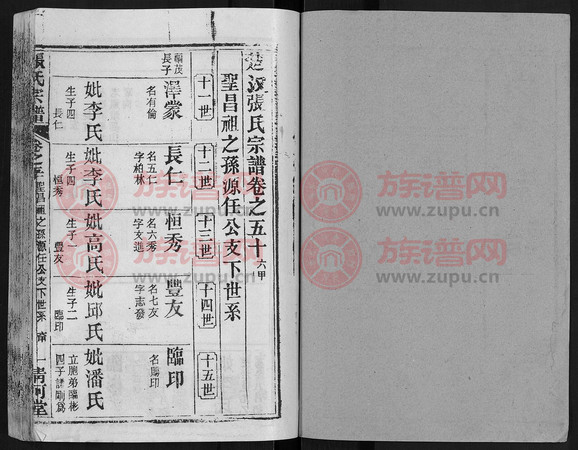 楚汉張氏宗譜卷之五十六甲
聖昌祖之孫源任公支下世系
十一世
十二世
十三世
十四世
十五世
福茂長子
澤蒙
名有倫
長仁
名五仁
字柏林
恒秀
名六秀
字文進
豐友
名七友
字志發
臨印
名賜印
妣李氏
生子四
長仁
妣李氏
生子四
恒秀
妣高氏
生子一
豐友
妣邱氏
生子二
臨印
妣潘氏
立胞弟臨彬
四子謀剛為
張氏宗譜
卷之
聖昌祖之孫源任公支下世系
一
清河堂
族谱网
www.zupu.cn
族谱网
www.zupu.cn
族谱网
www.zupu.cn
族谱网
www.zupu.cn